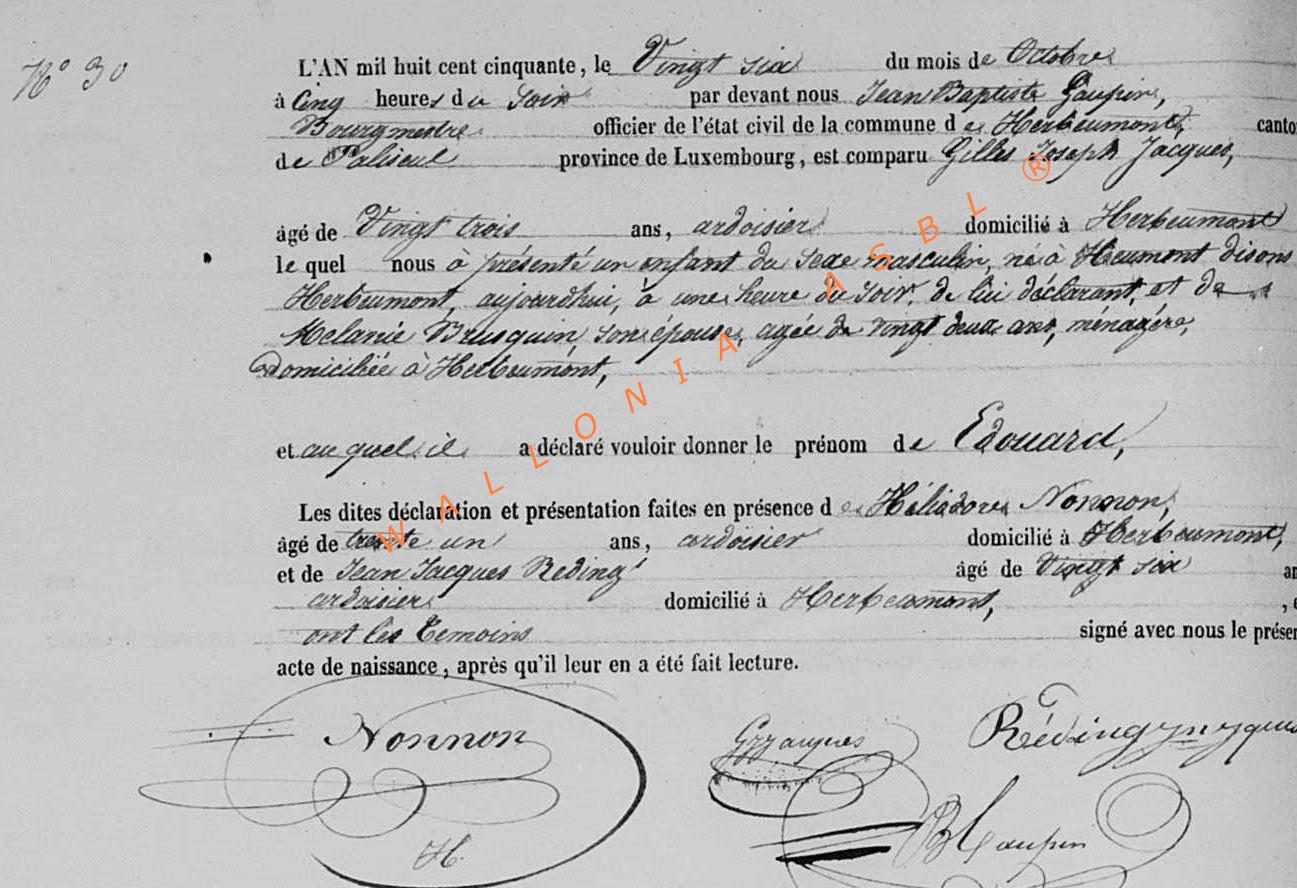 N° 30
L'AN mil huit cent cinquante, le Vingt six du mois de Octobre
à Cinq heures du Soir par devant nous Jean Baptiste Gaupin,
Bourgmestre officier de l'état civil de la commune de Herbeumont, canto
de Paliseul province de Luxembourg, est comparu Gilles Joseph Jacques,
âgé de Vingt trois ans, ardoisier domicilié à Herbeumont
le quel nous à présenté un enfant du Sexe masculin, né à Heumont disons
Herbeumont, aujourdhui, à une heure du Soir, de lui déclarant, et de
Melanie Brusquin, son épouse, agée de vingt deux ans, ménagére,
Domiciliée à Herbeumont,
et auquel il a déclaré vouloir donner le prénom de Edouard,
Les dites déclaration et présentation faites en présence de Héliodore Nonnon,
âgé de trente un ans, ardoisier domicilié à Herbeumont,
et de Jean Jacques Reding âgé de Vingt six an
ardoisier domicilié à Herbeumont, , e
ont les temoins signé avec nous le présen
acte de naissance, après qu'il leur en a été fait lecture.
Nonnon
H.
GJJacques
Réding
JBGaupin
WALLONIA ASBL ®